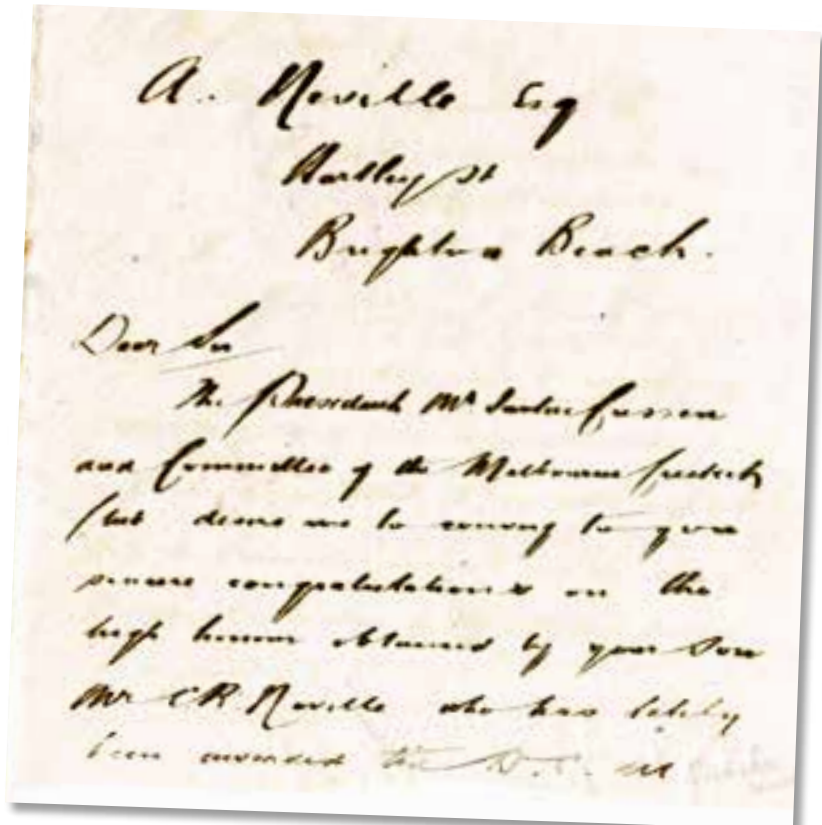 A. Neville Esq
Hartley St
Brighton Beach.
Dear Sir
The President Mr Justice Cussen
and Committee of the Melbourne Cricket
Club desire me to convey to you
sincere congratulations on the
high honor obtained by your Son
Mr C R Neville who has lately
been awarded the D.C.M